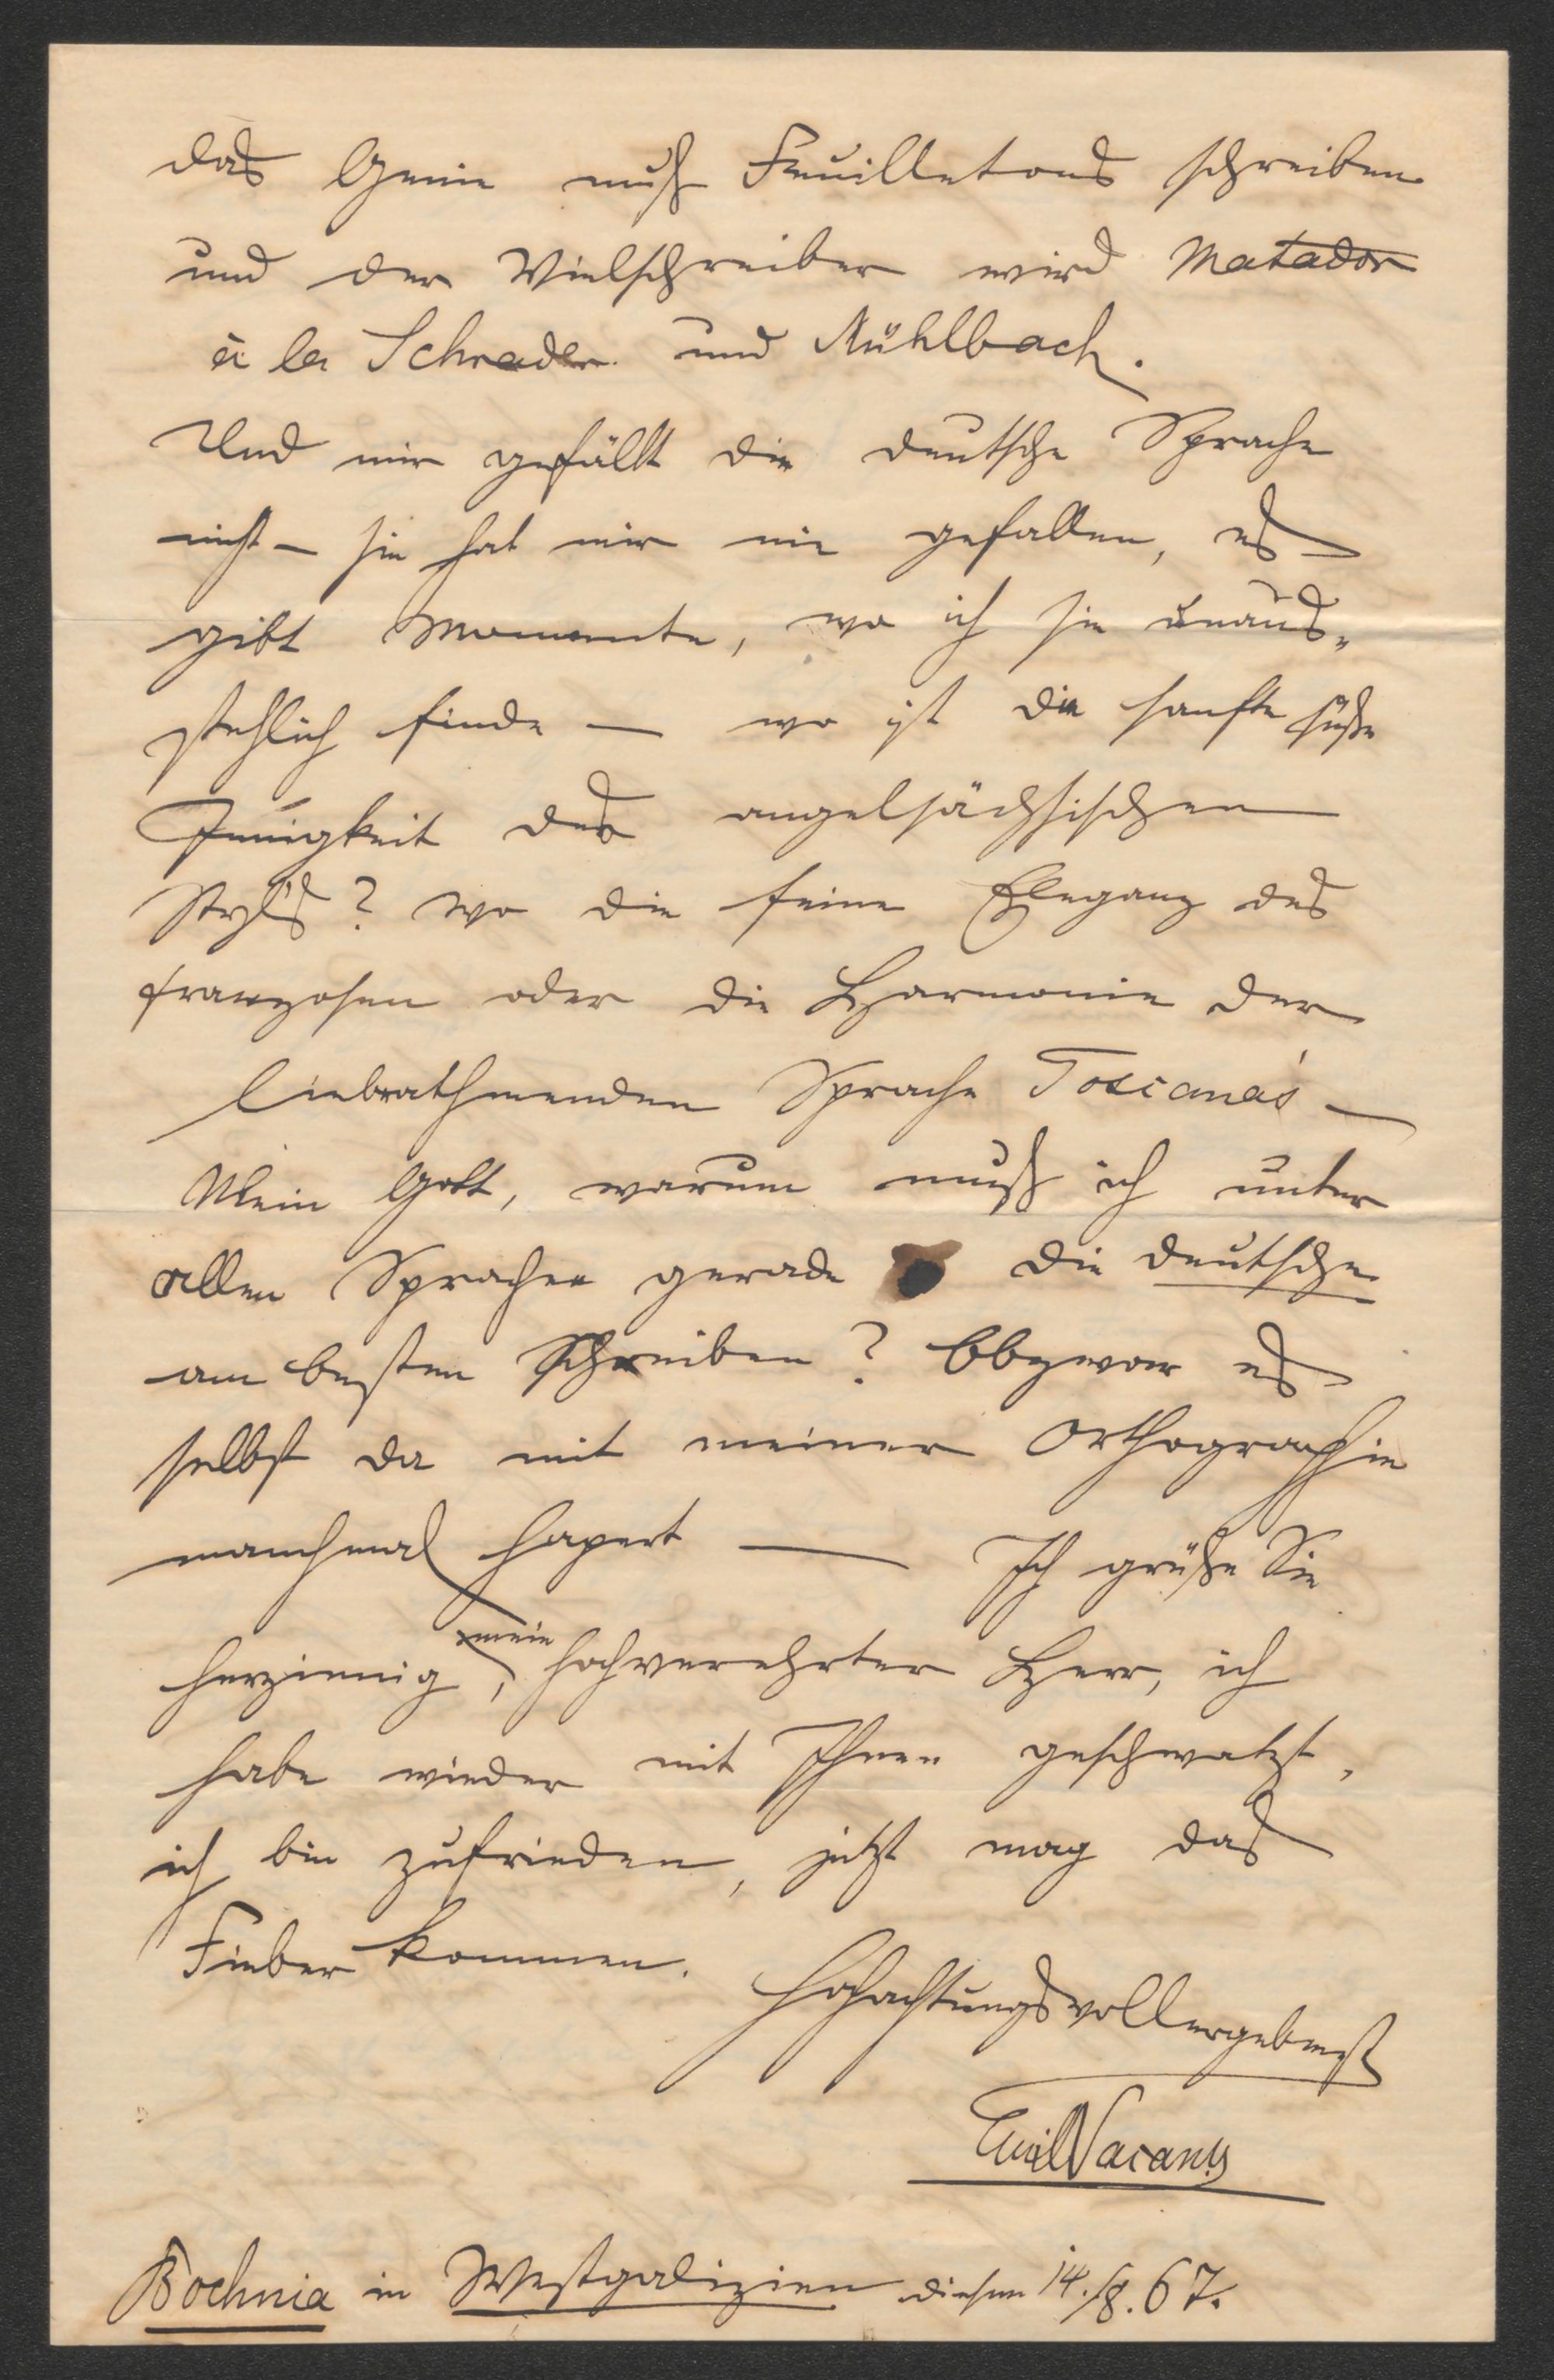 das Genie muß Feuilletons schreiben
und der Vielschreiber wird Matador
à la Schrader und Mühlbach.
Und mir gefällt die deutsche Sprache
nicht – sie hat mir nie gefallen, es
gibt Momente, wo ich sie unaus„
stehlich finde — wo ist die sanfte süße
Innigkeit des angelsächsischen
Styls? wo die feine Eleganz des
franzosen oder die Harmonie der
liebeathmenden Sprache Toscana's —
Mein Gott, warum muß ich unter
allen Sprachen gerade die deutsche
am besten schreiben? Obzwar es
selbst da mit meiner Orthographie
manchmal hapert — Ich grüße Sie
herzinnig, mein hochverehrter Herr, ich
habe wieder mit Ihnen geschwatzt,
ich bin zufrieden, jetzt mag das
Fieber kommen.
Hochachtungsvollergebenst
Emil Vacano
Bochnia in Westgalizien diesen 14./8.67.